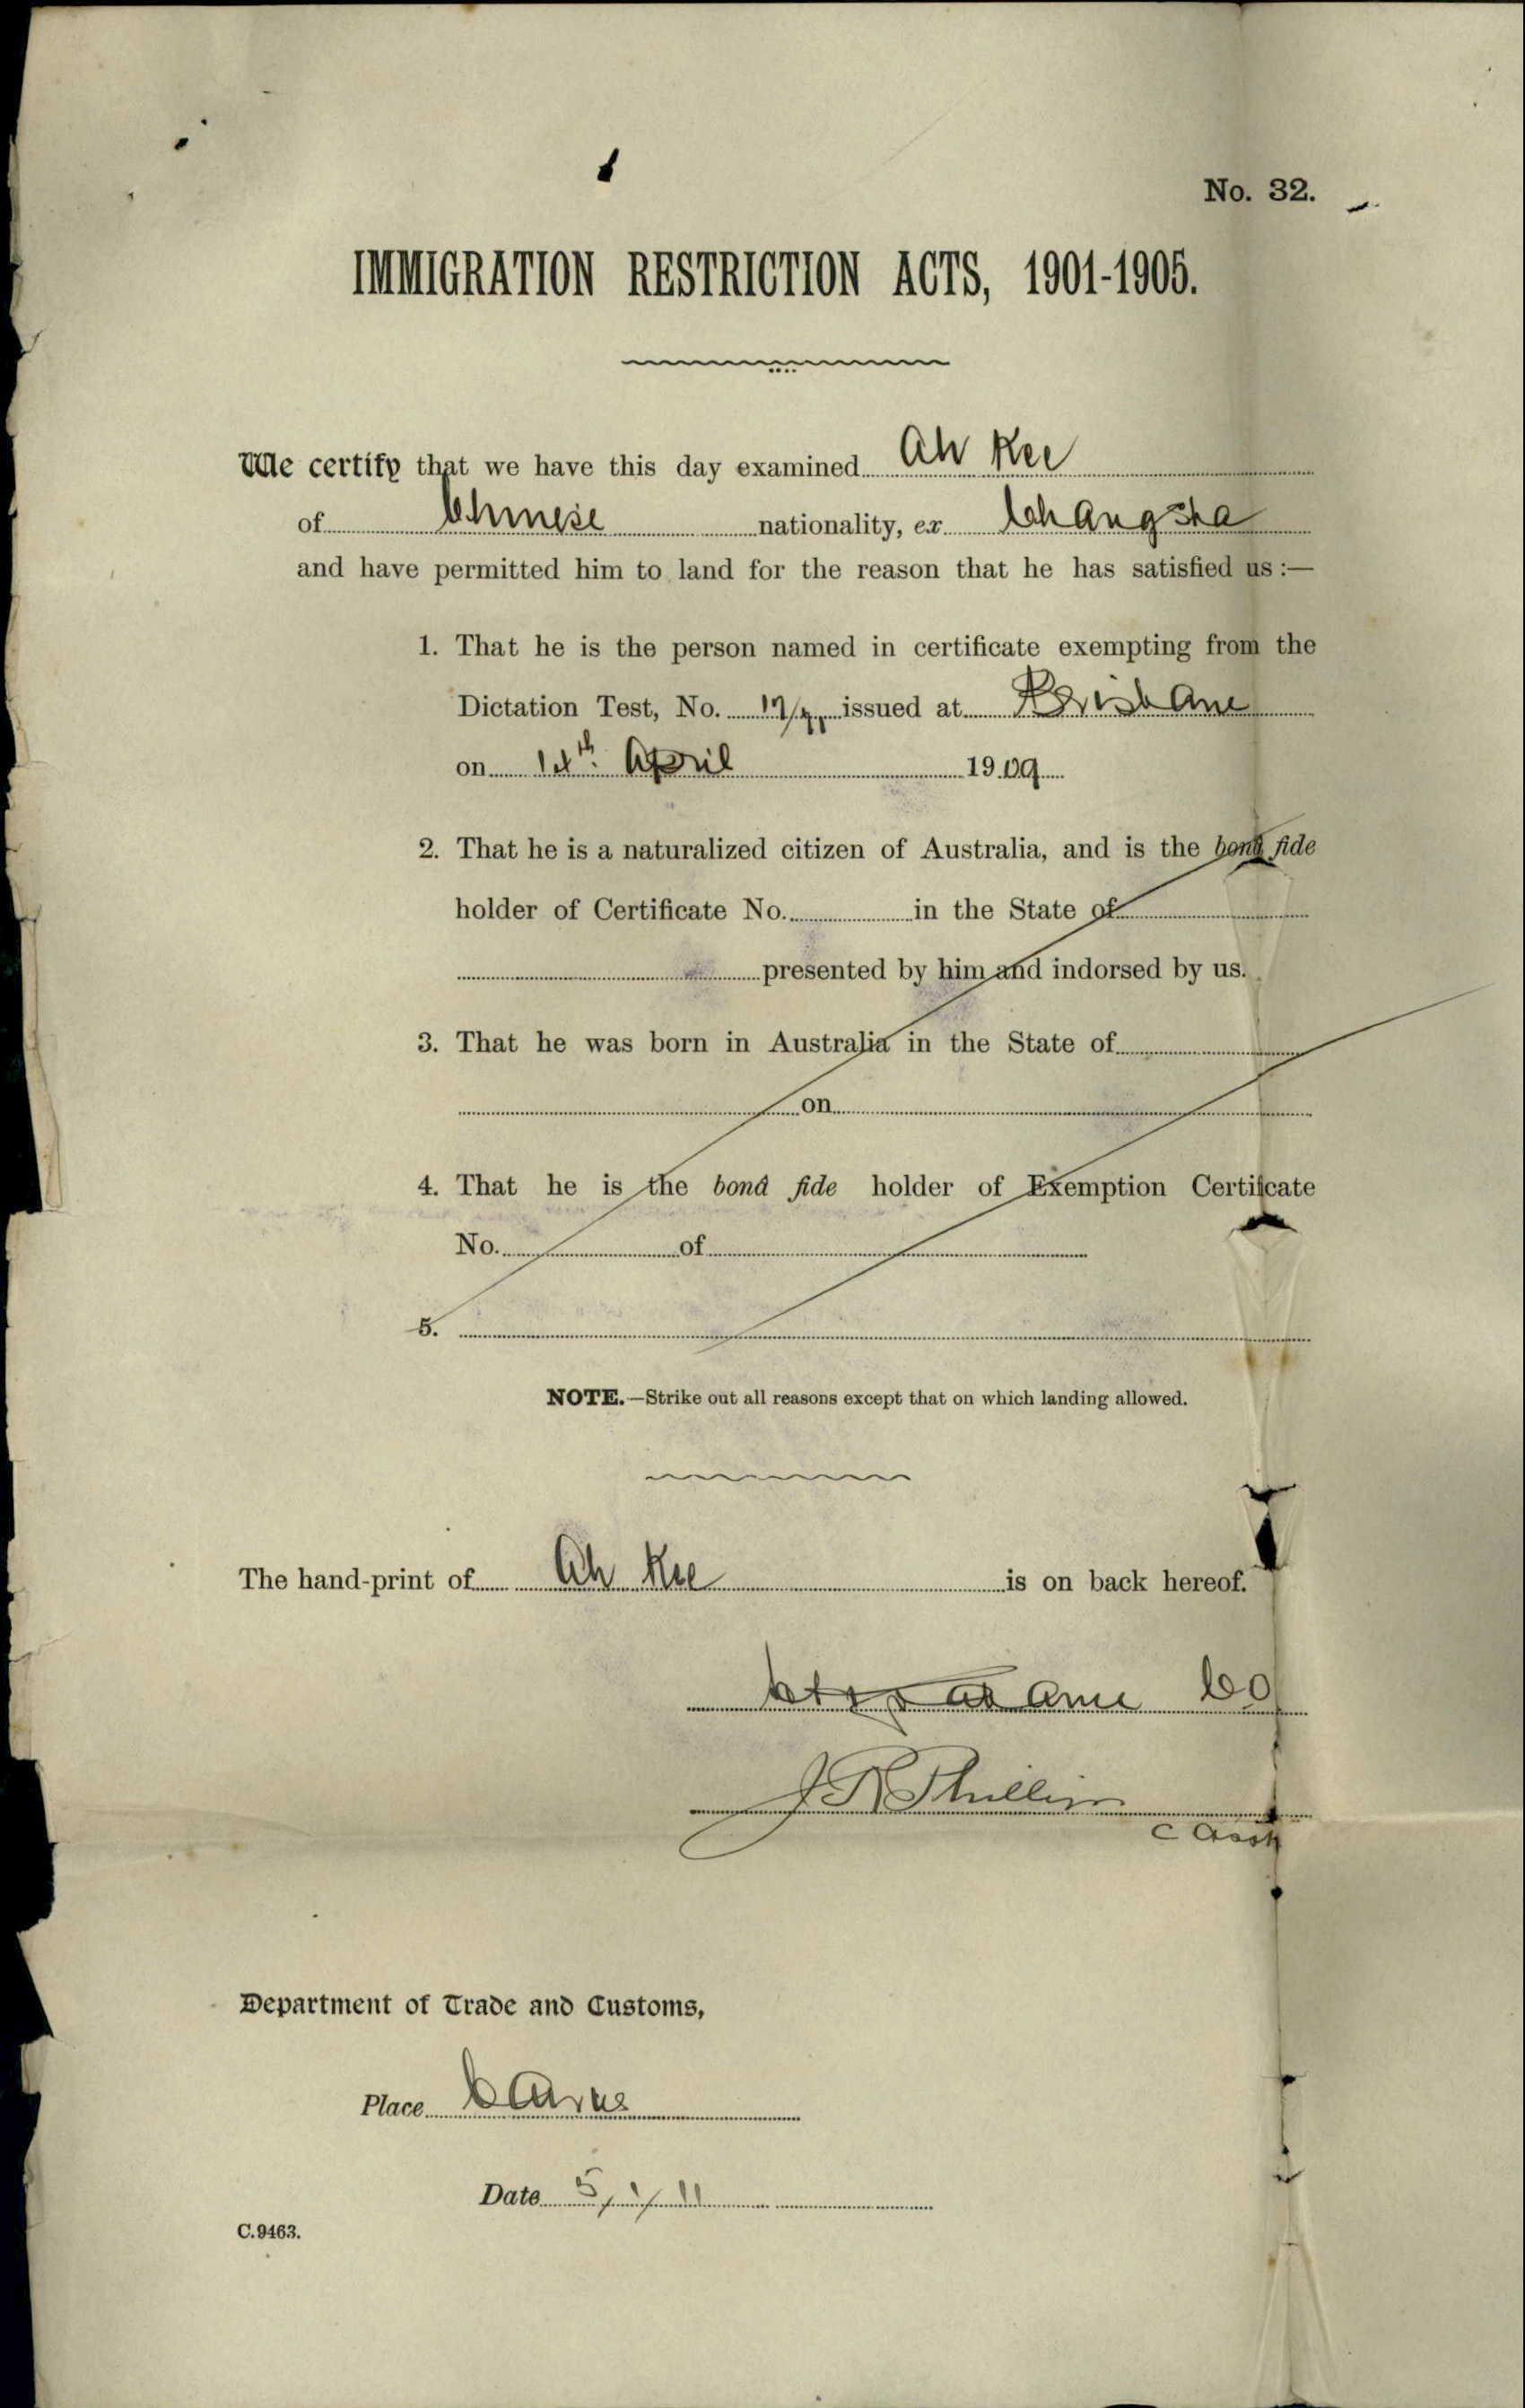 No. 32.
IMMIGRATION RESTRICTION ACTS, 1901-1905.
We certify that we have this day examined Ah Kee
of Chinese nationality, ex Changsha
and have permitted him to land for the reason that he has satisfied us :—
1. That he is the person named in certificate exempting from the
Dictation Test, No. issued at Brisbane
on 14th. April 1909
2. That he is a naturalized citizen of Australia, and is the bonâ fide
holder of Certificate No. in the State of
presented by him and indorsed by us.
3. That he was born in Australia in the State of
on
4. That he is the bonâ fide holder of Exemption Certificate
No. of
5.
NOTE.—Strike out all reasons except that on which landing allowed.
The hand-print of Ah Kee is on back hereof.
CO
J R Phillips
C Asst
Department of Trade and Customs,
Place Cairns
Date 5/1/11
C.9463.